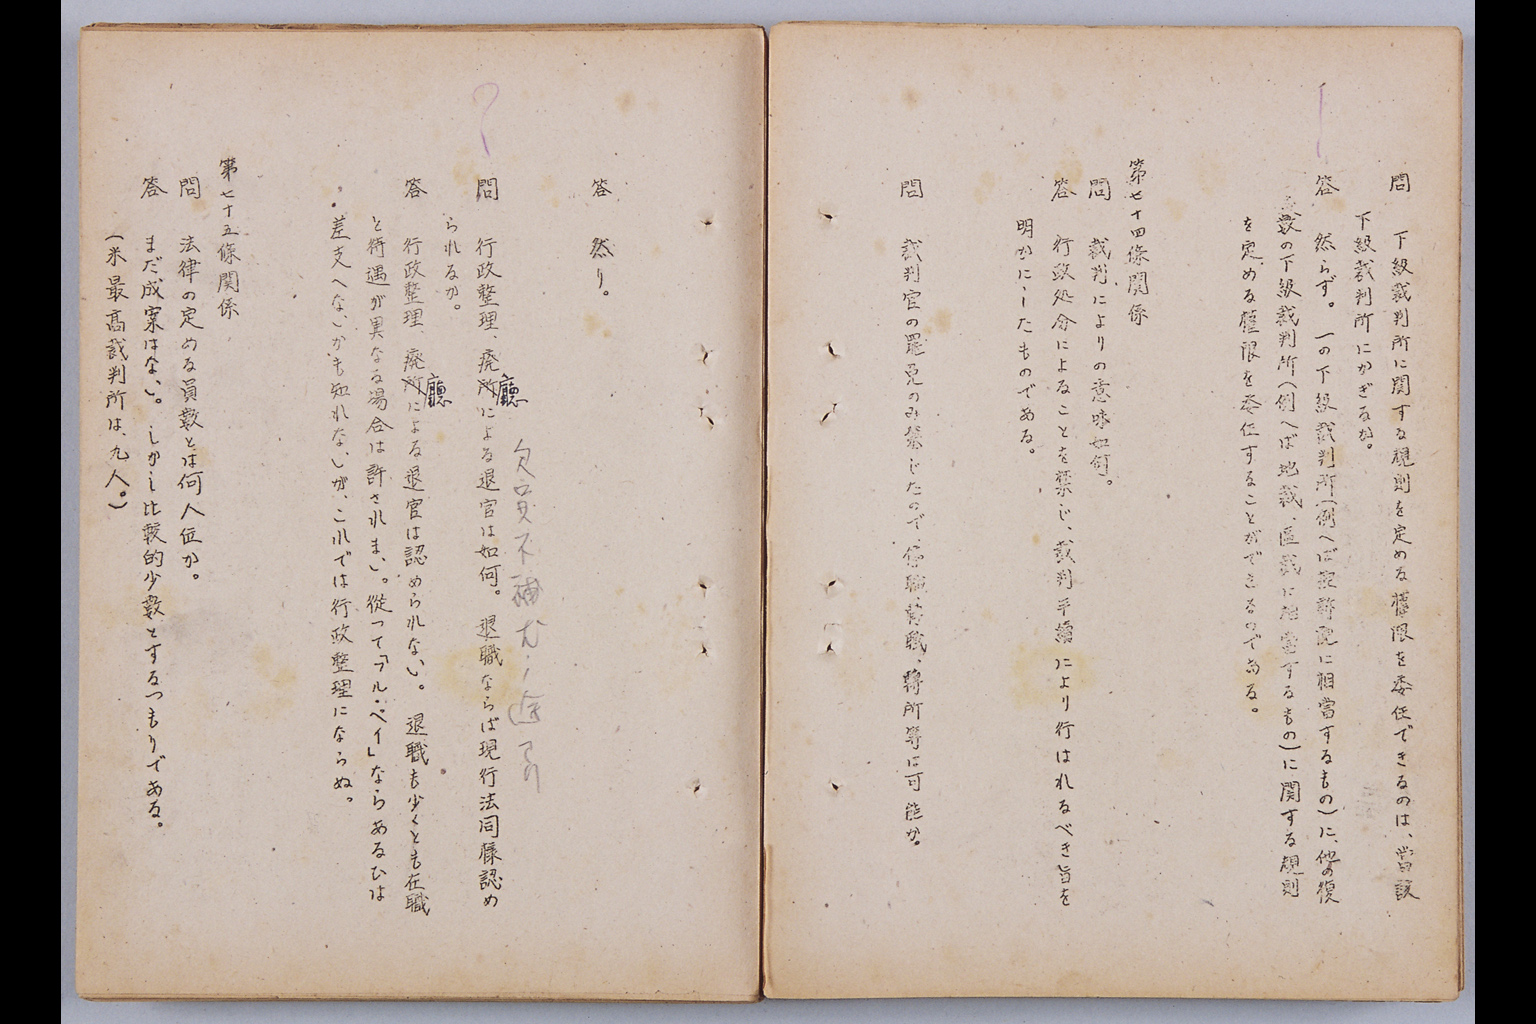 問　下級裁判所に関する規則を定める権限を委任できるのは、当該
下級裁判所にかぎるか。
答　然らず。一の下級裁判所(例へば控訴院に相当するもの)に、他の複
数の下級裁判所(例へば地裁、区裁に相当するもの)に関する規則
を定める権限を委任することができるのである。
第七十四條関係
問　裁判によりの意味如何。
答　行政処分によることを禁じ、裁判手續により行はれるべき旨を
明かにしたものである。
問　裁判官の罷免のみ禁じたので、停職、転職、轉所等は可能か。
答　然り。
欠員不補
問　行政整理、廃廳による退官は如何。退職ならば現行法同様認め
られるか。
答　行政整理、廃廳による退官は認められない。退職も少くとも在職
と待遇が異なる場合は許されまい。従って「フル・ペイ」ならあるひは
差支へないかも知れないが、これでは行政整理にならぬ。
第七十五條関係
問　法律の定める員數とは何人位か。
答　まだ成案はない。しかし比較的少數とするつもりである。
(米最高裁判所は、九人。)